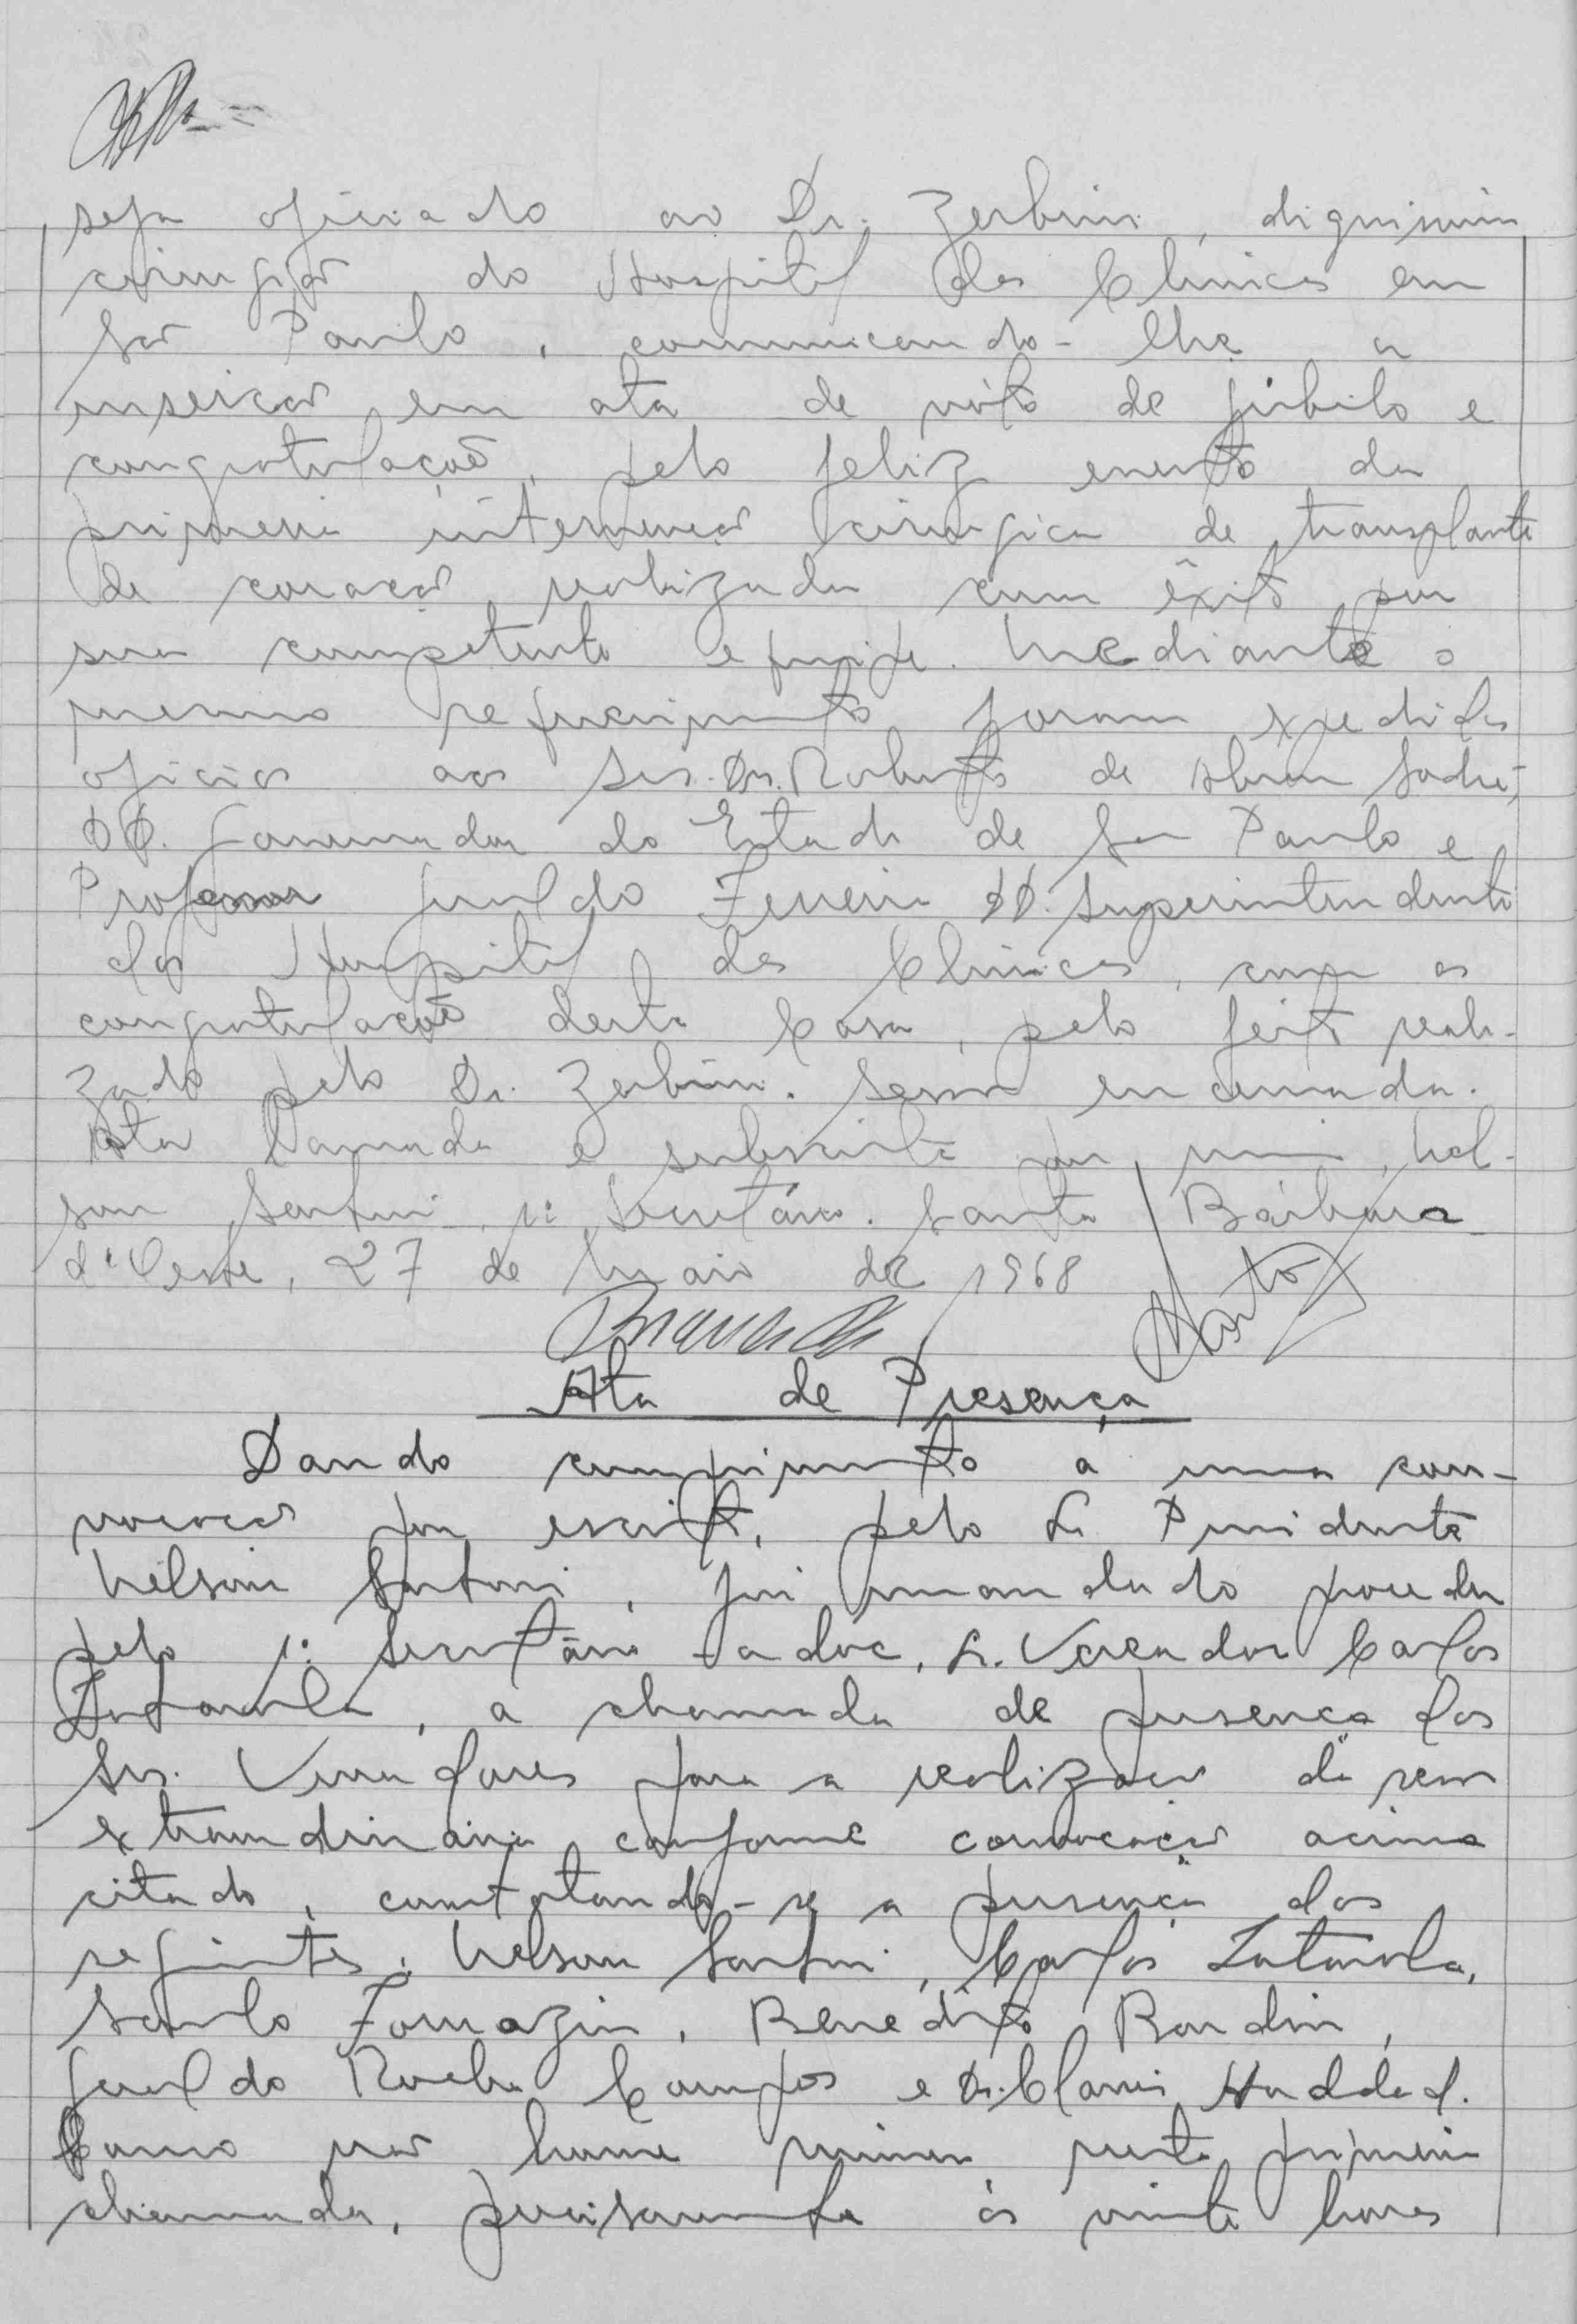 seja oficiado ao Dr. Zerbini, digníssimo
cirurgião do Hospital das Clínicas em
São Paulo, comunicando-lhe a
inserção em ata de vóto de júbilo e
congratulações, pelo feliz evento da
primeira intervenção cirurgica de transplante
de coração realizada com êxito por
sua competente equipe. Mediante o
mesmo requerimento foram expedidos
oficios aos Srs. Dr. Roberto de Abreu Sodré,
DD. Governador do Estado de São Paulo e
Professor Geraldo Ferreira DD. Superintendente
do Hospital das Clínicas, com as
congratulações desta Casa, pelo feito reali-
zado pelo Dr. Zerbini. Sessão encerrada.
Ata lavrada e subscrita por mim, Nel-
son Santini, 1º Secretário. Santa Bárbara
d'Oeste, 27 de Maio de 1968
Ata de Presença
Dando cumprimento a uma con-
vocação por escrito, pelo Sr. Presidente
Nelson Santini, foi mandado proceder
pelo 1º Secretário ad-oc, Sr. Vereador Carlos
a chamada de presença dos
Srs. Vereadores para a realização da sessão
extraordinária conforme convocação acima
citado, constatando-se a presença dos
seguintes: Nelson Santini, Carlos
Saulo Fornazin, Benedito Bordin,
Geraldo Rocha Campos e Dr. Clovis Haddad.
Como não houve número nesta primeira
chamada, precisamente às vinte horas